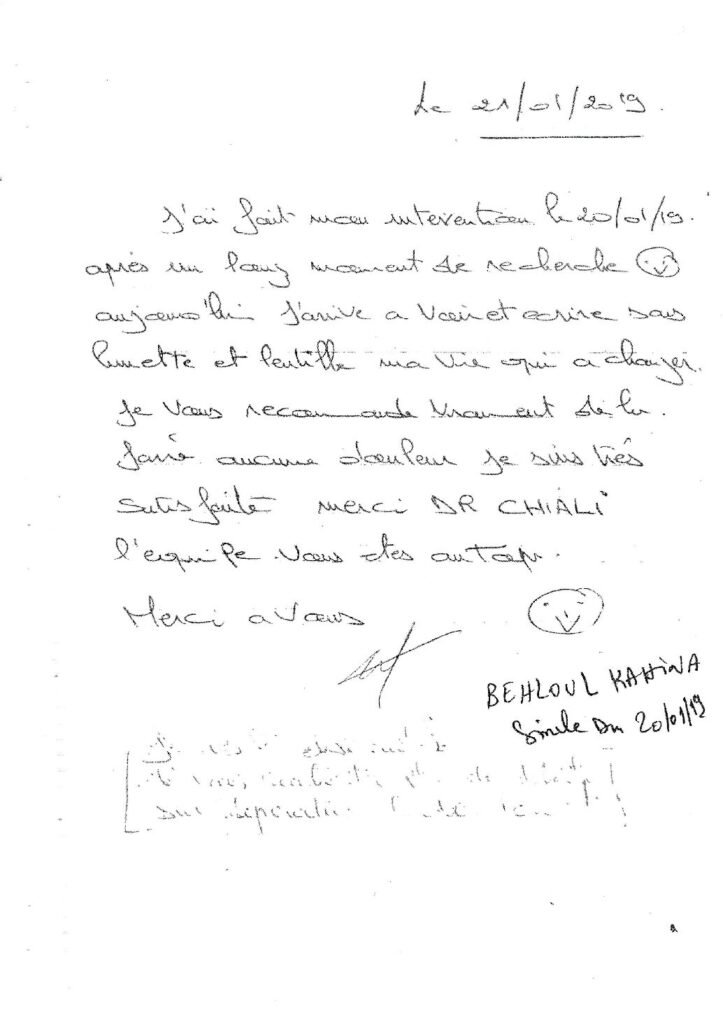 Le 21/01/2019.
J'ai fait mon intervention le 20/01/19.
après un long moment de recherche
aujourd'hui J'arrive a Voir et ecrire sans
lunette et lentille ma vie qui a changer.
Je Vous recommande Vraiment de le
faire aucune douleur je suis très
satisfaite merci DR CHIALI
l'equipe Vous etes au top.
Merci a Vous
BEHLOUL KAHINA
Simile Du 20/01/19